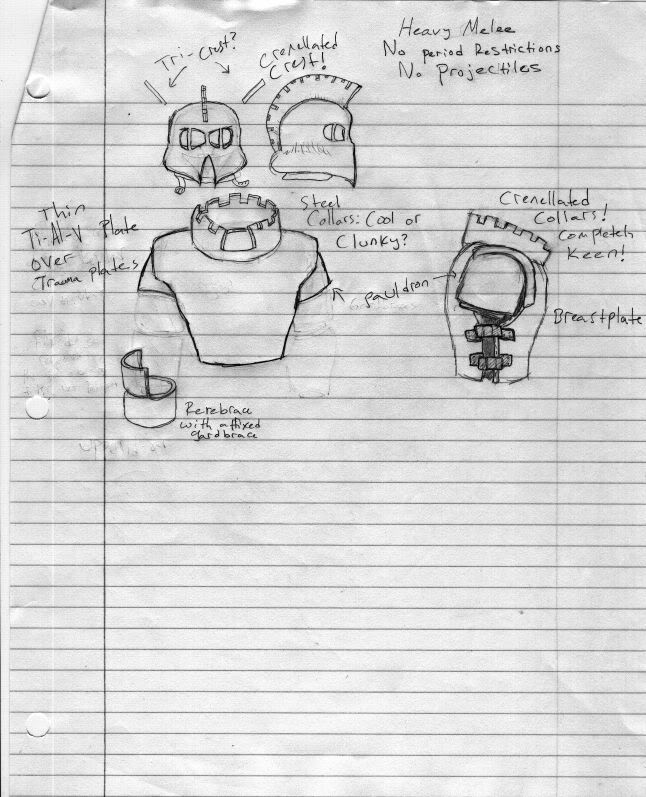 Heavy Melee
No Period Restrictions
No Projectiles
Tri-Crest?
Crenellated
Crest!
Thin
Ti-Al-V Plate
over
Trauma plates
Steel
Collars: Cool or
Clunky?
Crenellated
Collars!
Completely
Keen!
Pauldron
Breastplate
Rerebrace
with affixed
gardbrace